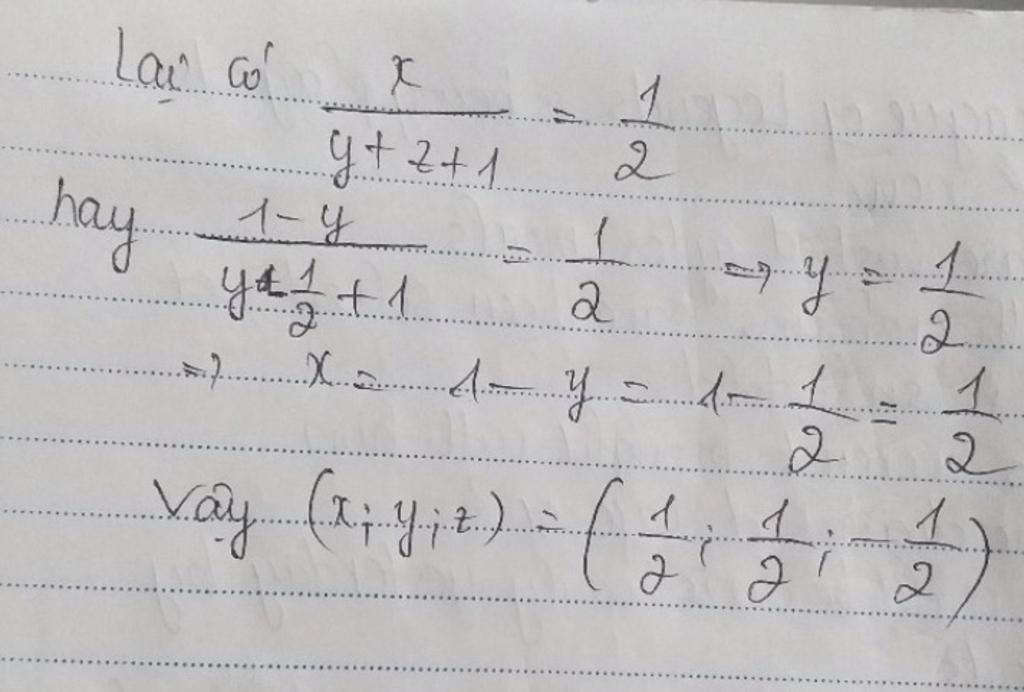 Lại có x/(y+z+1) = 1/2
hay (1-y)/(y-1/2+1) = 1/2 => y = 1/2
=> x = 1-y = 1-1/2 = 1/2
Vậy (x;y;z) = (1/2; 1/2; -1/2)